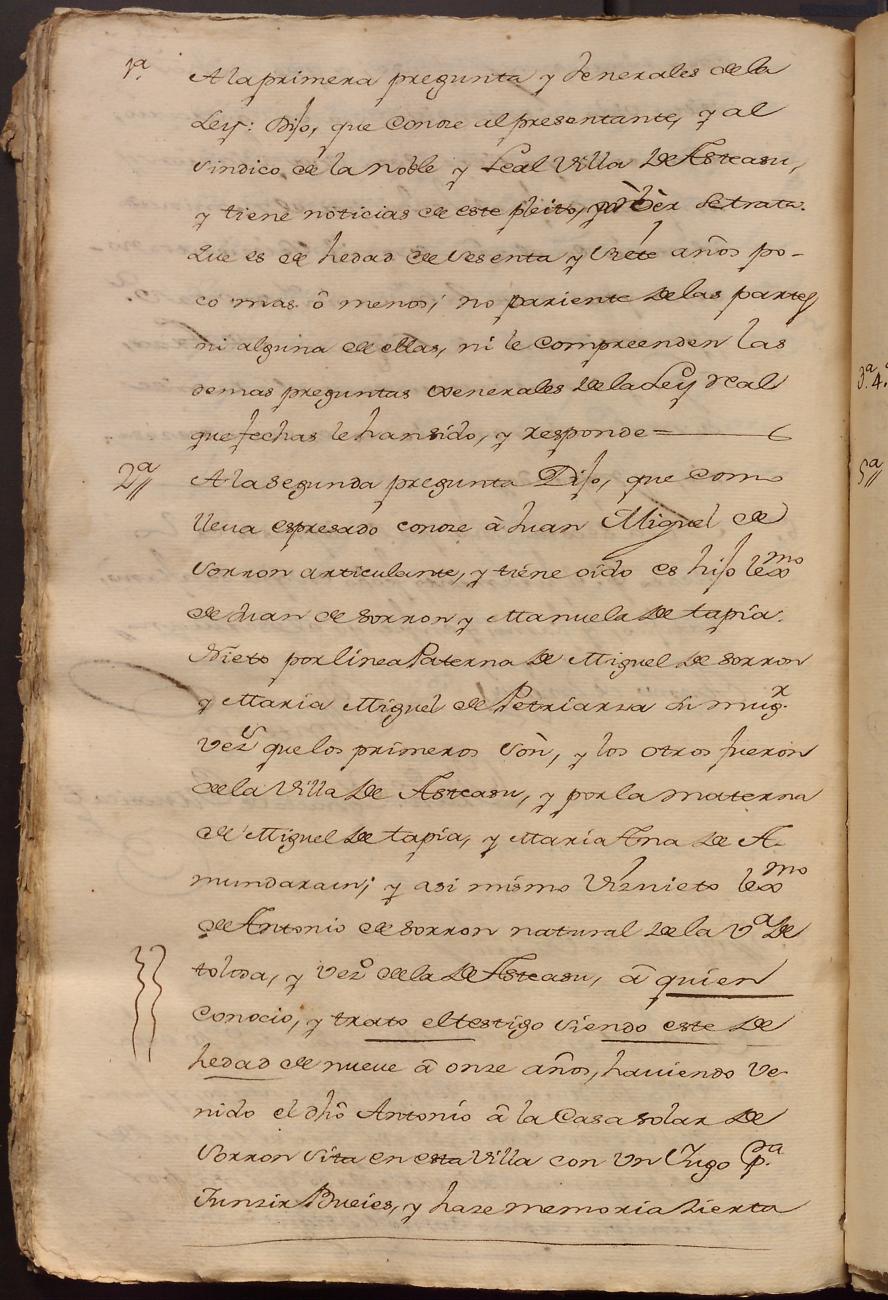 1ª A la primera pregunta y Jenerales de la
Ley: Dijo, que conoze al presentante, y al
sindico de la noble y Leal Villa de Asteasu,
y tiene noticias de este pleito, se trata.
Que es de hedad de sesenta y siete años po-
co mas ô menos; no pariente de las partes
ni alguna de ellas, ni le compreenden las
demas preguntas Jenerales de la Ley real
que fechas le han sido, y responde =
2ª A la segunda pregunta Dijo, que como
lleva espresado conoze â Juan Miguel de
Sorron articulante, y tiene oido es hijo lexmo
de Juan de Sorron y Manuela de tapia.
Nieto por linea Paterna de Miguel de Sorron
y Maria Miguel de Petriarza su mugr.
vezs que los primeros son, y los otros fueron
de la Villa de Asteasu, y por la materna
de Miguel de tapia, y Maria Ana de A-
mundarain; y asi mismo Viznieto lexmo
de Antonio de Sorron natural de la Vª de
tolosa, y vezº de la de Asteasu, â quien
conocio, y trato el testigo siendo este de
hedad de nueve â onze años, haviendo ve-
nido el dhô Antonio â la Casa solar de
Sorron sita en esta Villa con un Yugo pª
Junzir Bueies, y haze memoria zierta
3ª 4ª
5ª